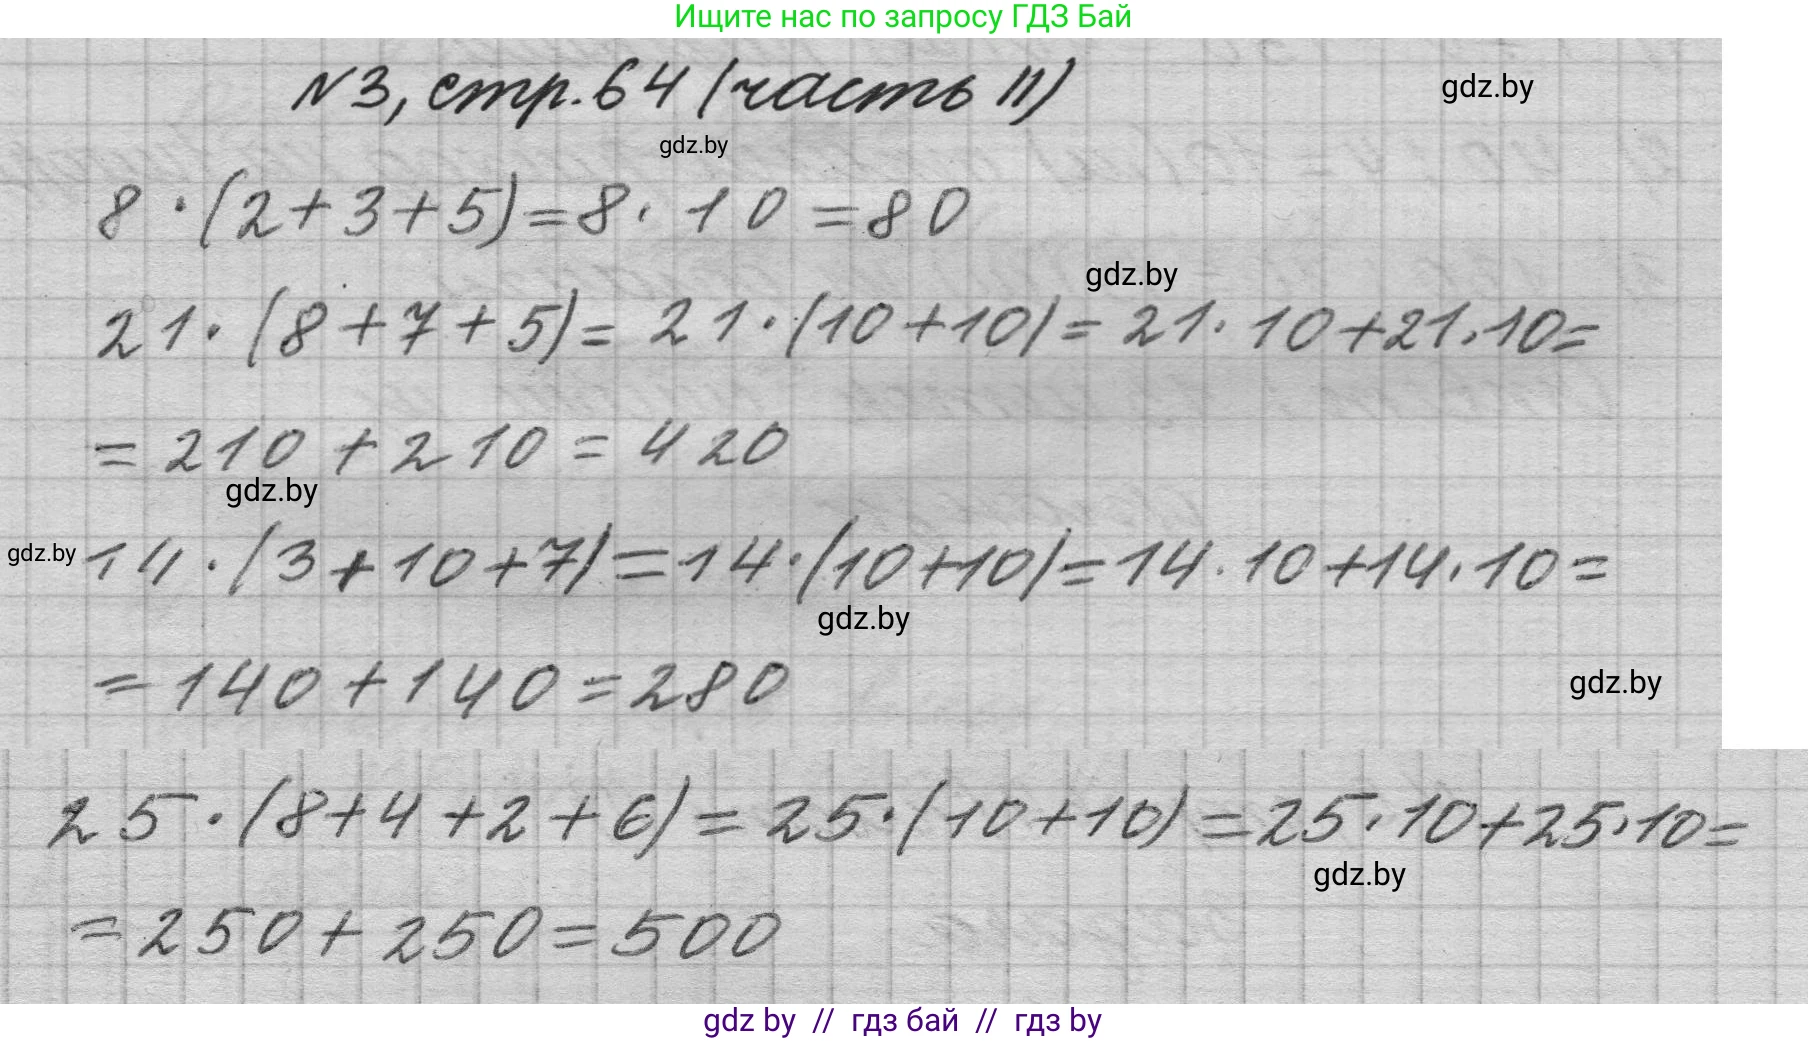 Ищите нас по запросу ГДЗ Бай
№3, стр. 64 (часть II)
gdz.by
gdz.by
8 · (2 + 3 + 5) = 8 · 10 = 80
gdz.by
21 · (8 + 7 + 5) = 21 · (10 + 10) = 21 · 10 + 21 · 10 =
= 210 + 210 = 420
gdz.by
gdz.by
14 · (3 + 10 + 7) = 14 · (10 + 10) = 14 · 10 + 14 · 10 =
gdz.by
= 140 + 140 = 280
gdz.by
25 · (8 + 4 + 2 + 6) = 25 · (10 + 10) = 25 · 10 + 25 · 10 =
gdz.by
= 250 + 250 = 500
gdz by // гдз бай // гдз by